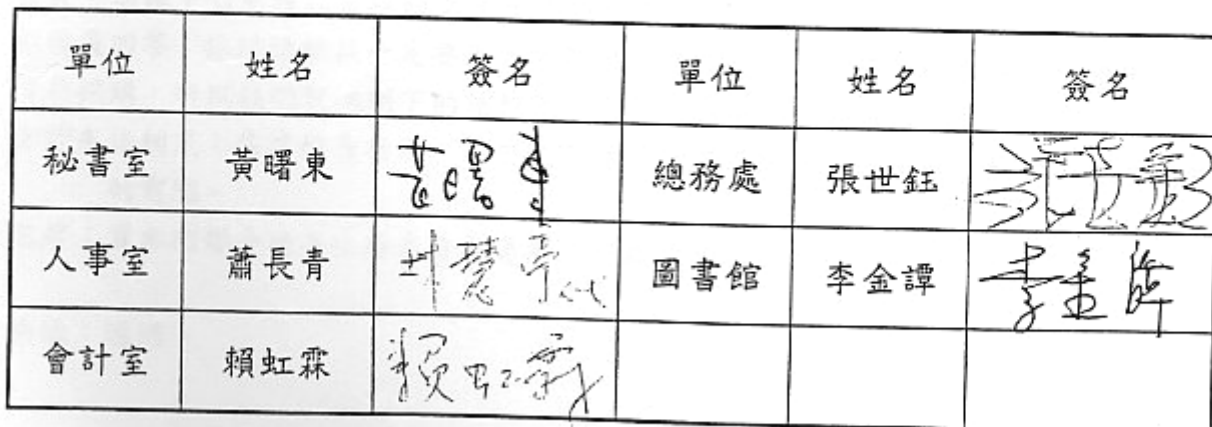 單位 姓名 簽名 單位 姓名 簽名
秘書室 黃曙東 黃曙東 總務處 張世鈺
人事室 蕭長青 圖書館 李金譚 李金譚
會計室 賴虹霖 賴虹霖